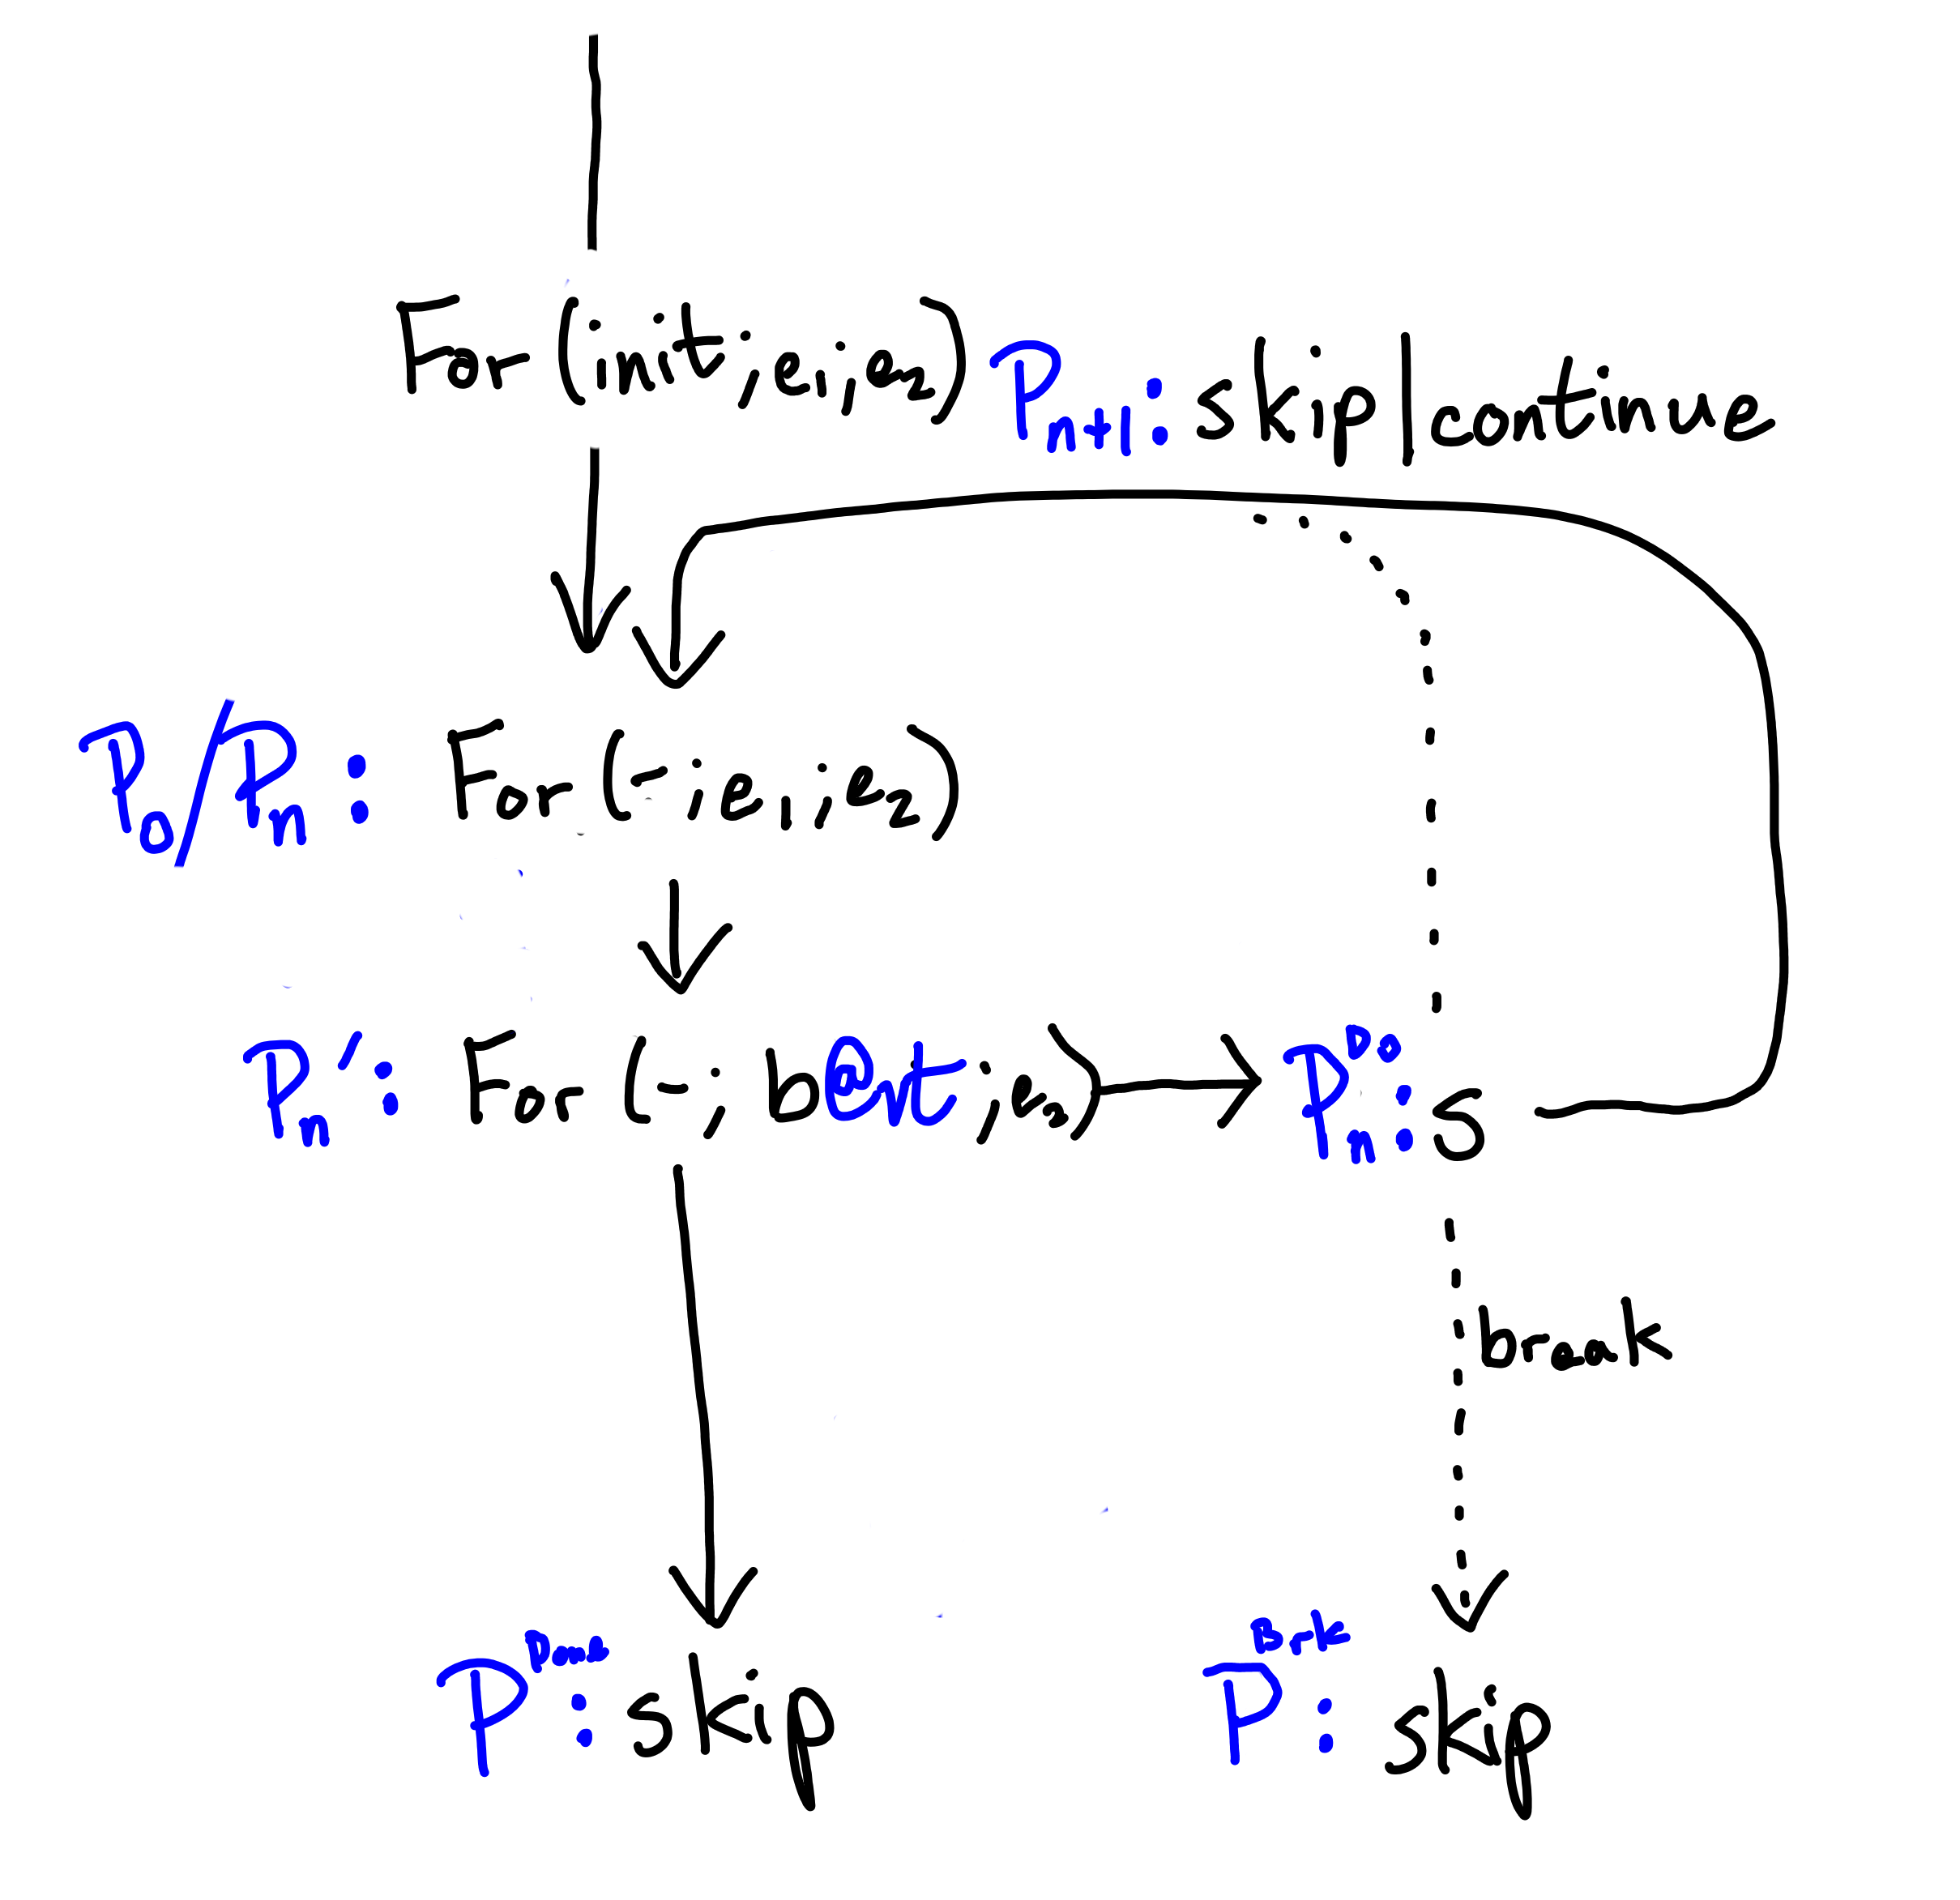 For (init; e₁; e₂) Pₙ₊₁: skip | continue
P₀/Pₙ: For (-; e₁; e₂)
Pₙ': For (-; b@t; e₂) Pₙᴰᵒ: s
break
Pᴰᵒⁿᵉ: skip Pᴮʳᵏ: skip